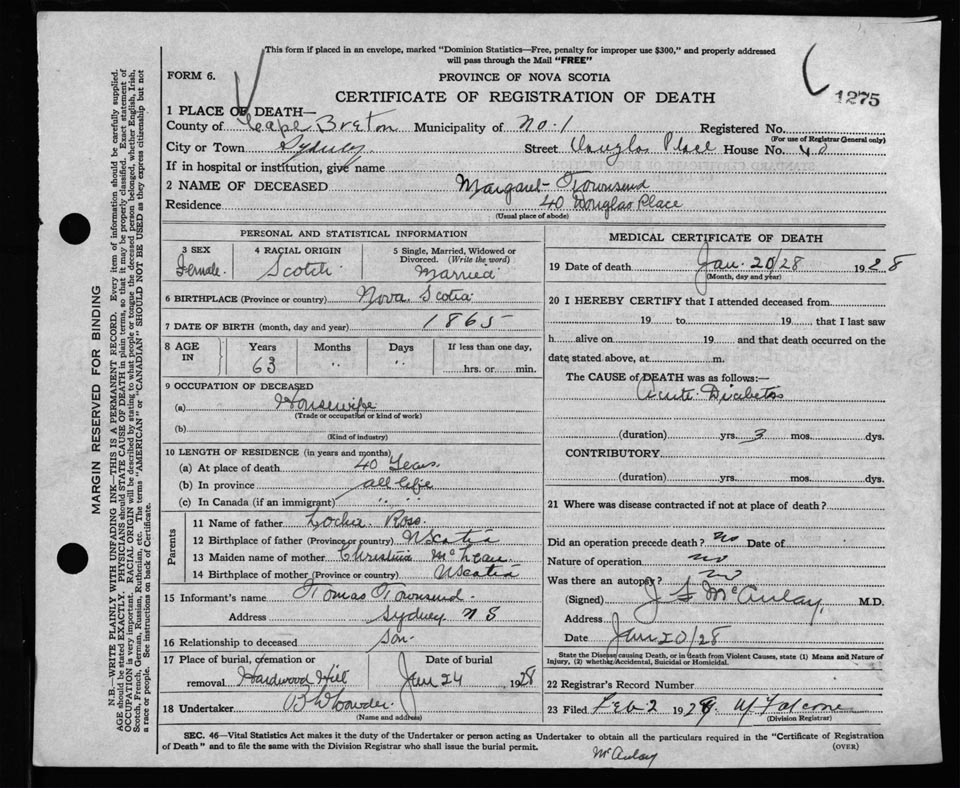 This form if placed in an envelope, marked "Dominion Statistics—Free, penalty for improper use $300," and properly addressed
will pass through the Mail "FREE"
FORM 6.
PROVINCE OF NOVA SCOTIA
CERTIFICATE OF REGISTRATION OF DEATH
1275
1 PLACE OF DEATH—
County of Cape Breton Municipality of No. 1 Registered No.
(For use of Registrar General only)
City or Town Sydney Street Douglas Place House No. 40
If in hospital or institution, give name
2 NAME OF DECEASED Margaret Townsend
Residence 40 Douglas Place
(Usual place of abode)
PERSONAL AND STATISTICAL INFORMATION
3 SEX Female.
4 RACIAL ORIGIN Scotch
5 Single, Married, Widowed or
Divorced. (Write the word)
Married
6 BIRTHPLACE (Province or country) Nova Scotia
7 DATE OF BIRTH (month, day and year) 1865
8 AGE IN
Years Months Days If less than one day,
63 " " hrs. or min.
9 OCCUPATION OF DECEASED
(a) Housewife
(Trade or occupation or kind of work)
(b)
(Kind of industry)
10 LENGTH OF RESIDENCE (in years and months)
(a) At place of death 40 Years.
(b) In province all life
(c) In Canada (if an immigrant) " "
Parents
11 Name of father Lochie Ross.
12 Birthplace of father (Province or country) N Scotia
13 Maiden name of mother Christina McLean.
14 Birthplace of mother (Province or country) N Scotia
15 Informant's name Tomas Townsend.
Address Sydney N S
16 Relationship to deceased Son.
17 Place of burial, cremation or Date of burial
removal Hardwood Hill Jan 24 1928
18 Undertaker
(Name and address)
MEDICAL CERTIFICATE OF DEATH
19 Date of death Jan. 20/28 1928
(Month, day and year)
20 I HEREBY CERTIFY that I attended deceased from
19 to 19 , that I last saw
h alive on 19 and that death occurred on the
date stated above, at m.
The CAUSE of DEATH was as follows:—
Acute Diabetes
(duration) yrs. 3 mos. dys.
CONTRIBUTORY
(duration) yrs. mos. dys.
21 Where was disease contracted if not at place of death?
Did an operation precede death? no Date of
Nature of operation no
Was there an autopsy? no
(Signed) J S McAulay, M.D.
Address
Date Jan 20/28
State the Disease causing Death, or in death from Violent Causes, state (1) Means and Nature of
Injury, (2) whether Accidental, Suicidal or Homicidal.
22 Registrar's Record Number
23 Filed Feb 2 1928 W Falcone
(Division Registrar)
SEC. 46—Vital Statistics Act makes it the duty of the Undertaker or person acting as Undertaker to obtain all the particulars required in the "Certificate of Registration
of Death" and to file the same with the Division Registrar who shall issue the burial permit.
(OVER)
McAulay
MARGIN RESERVED FOR BINDING
N.B.—WRITE PLAINLY WITH UNFADING INK—THIS IS A PERMANENT RECORD. Every item of information should be carefully supplied.
AGE should be stated EXACTLY. PHYSICIANS should STATE CAUSE OF DEATH in plain terms, so that it may be properly classified. Exact statement of
OCCUPATION is very important. RACIAL ORIGIN will be described by stating to what people or tongue the deceased person belonged, whether English, Irish,
Scotch, French, German, Russian, Ruthenian, etc. The terms "AMERICAN" or "CANADIAN" SHOULD NOT BE USED as they express citizenship but not
a race or people. See instructions on back of Certificate.